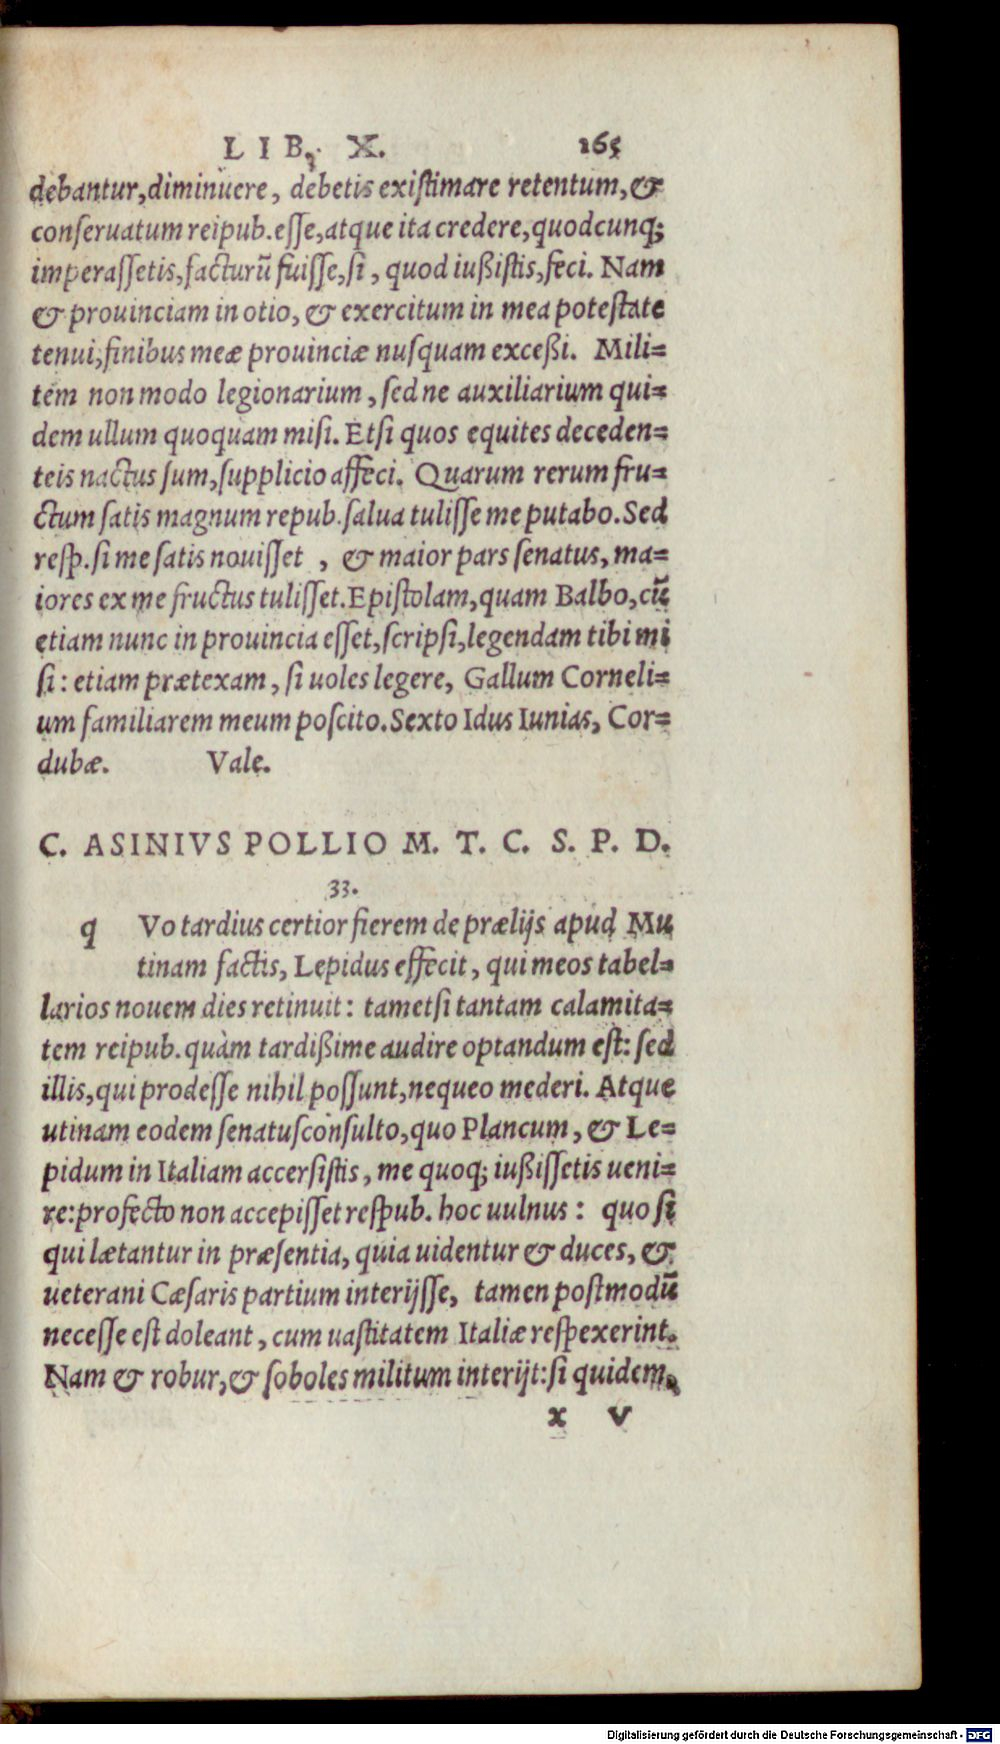 LIB. X. 165
debantur, diminuere, debetis existimare retentum, &
conseruatum reipub. esse, atque ita credere, quodcunq;
imperassetis, facturũ fuisse, si, quod iußistis, feci. Nam
& prouinciam in otio, & exercitum in mea potestate
tenui, finibus meæ prouinciæ nusquam exceßi. Mili=
tem non modo legionarium, sed ne auxiliarium qui=
dem ullum quoquam misi. Etsi quos equites deceden=
teis nactus sum, supplicio affeci. Quarum rerum fru=
ctum satis magnum repub. salua tulisse me putabo. Sed
resp. si me satis nouisset, & maior pars senatus, ma=
iores ex me fructus tulisset. Epistolam, quam Balbo, cũ
etiam nunc in prouincia esset, scripsi, legendam tibi mi
si: etiam prætexam, si uoles legere, Gallum Corneli=
um familiarem meum poscito. Sexto Idus Iunias, Cor=
dubæ. Vale.
C. ASINIVS POLLIO M. T. C. S. P. D.
33.
q Vo tardius certior fierem de prælijs apud Mu
tinam factis, Lepidus effecit, qui meos tabel=
larios nouem dies retinuit: tametsi tantam calamita=
tem reipub. quàm tardißime audire optandum est: sed
illis, qui prodesse nihil possunt, nequeo mederi. Atque
utinam eodem senatusconsulto, quo Plancum, & Le=
pidum in Italiam accersistis, me quoq; iußissetis ueni=
re: profecto non accepisset respub. hoc uulnus: quo si
qui lætantur in præsentia, quia uidentur & duces, &
ueterani Cæsaris partium interijsse, tamen postmodũ
necesse est doleant, cum uastitatem Italiæ respexerint.
Nam & robur, & soboles militum interijt: si quidem,
x v
Digitalisierung gefördert durch die Deutsche Forschungsgemeinschaft - DFG